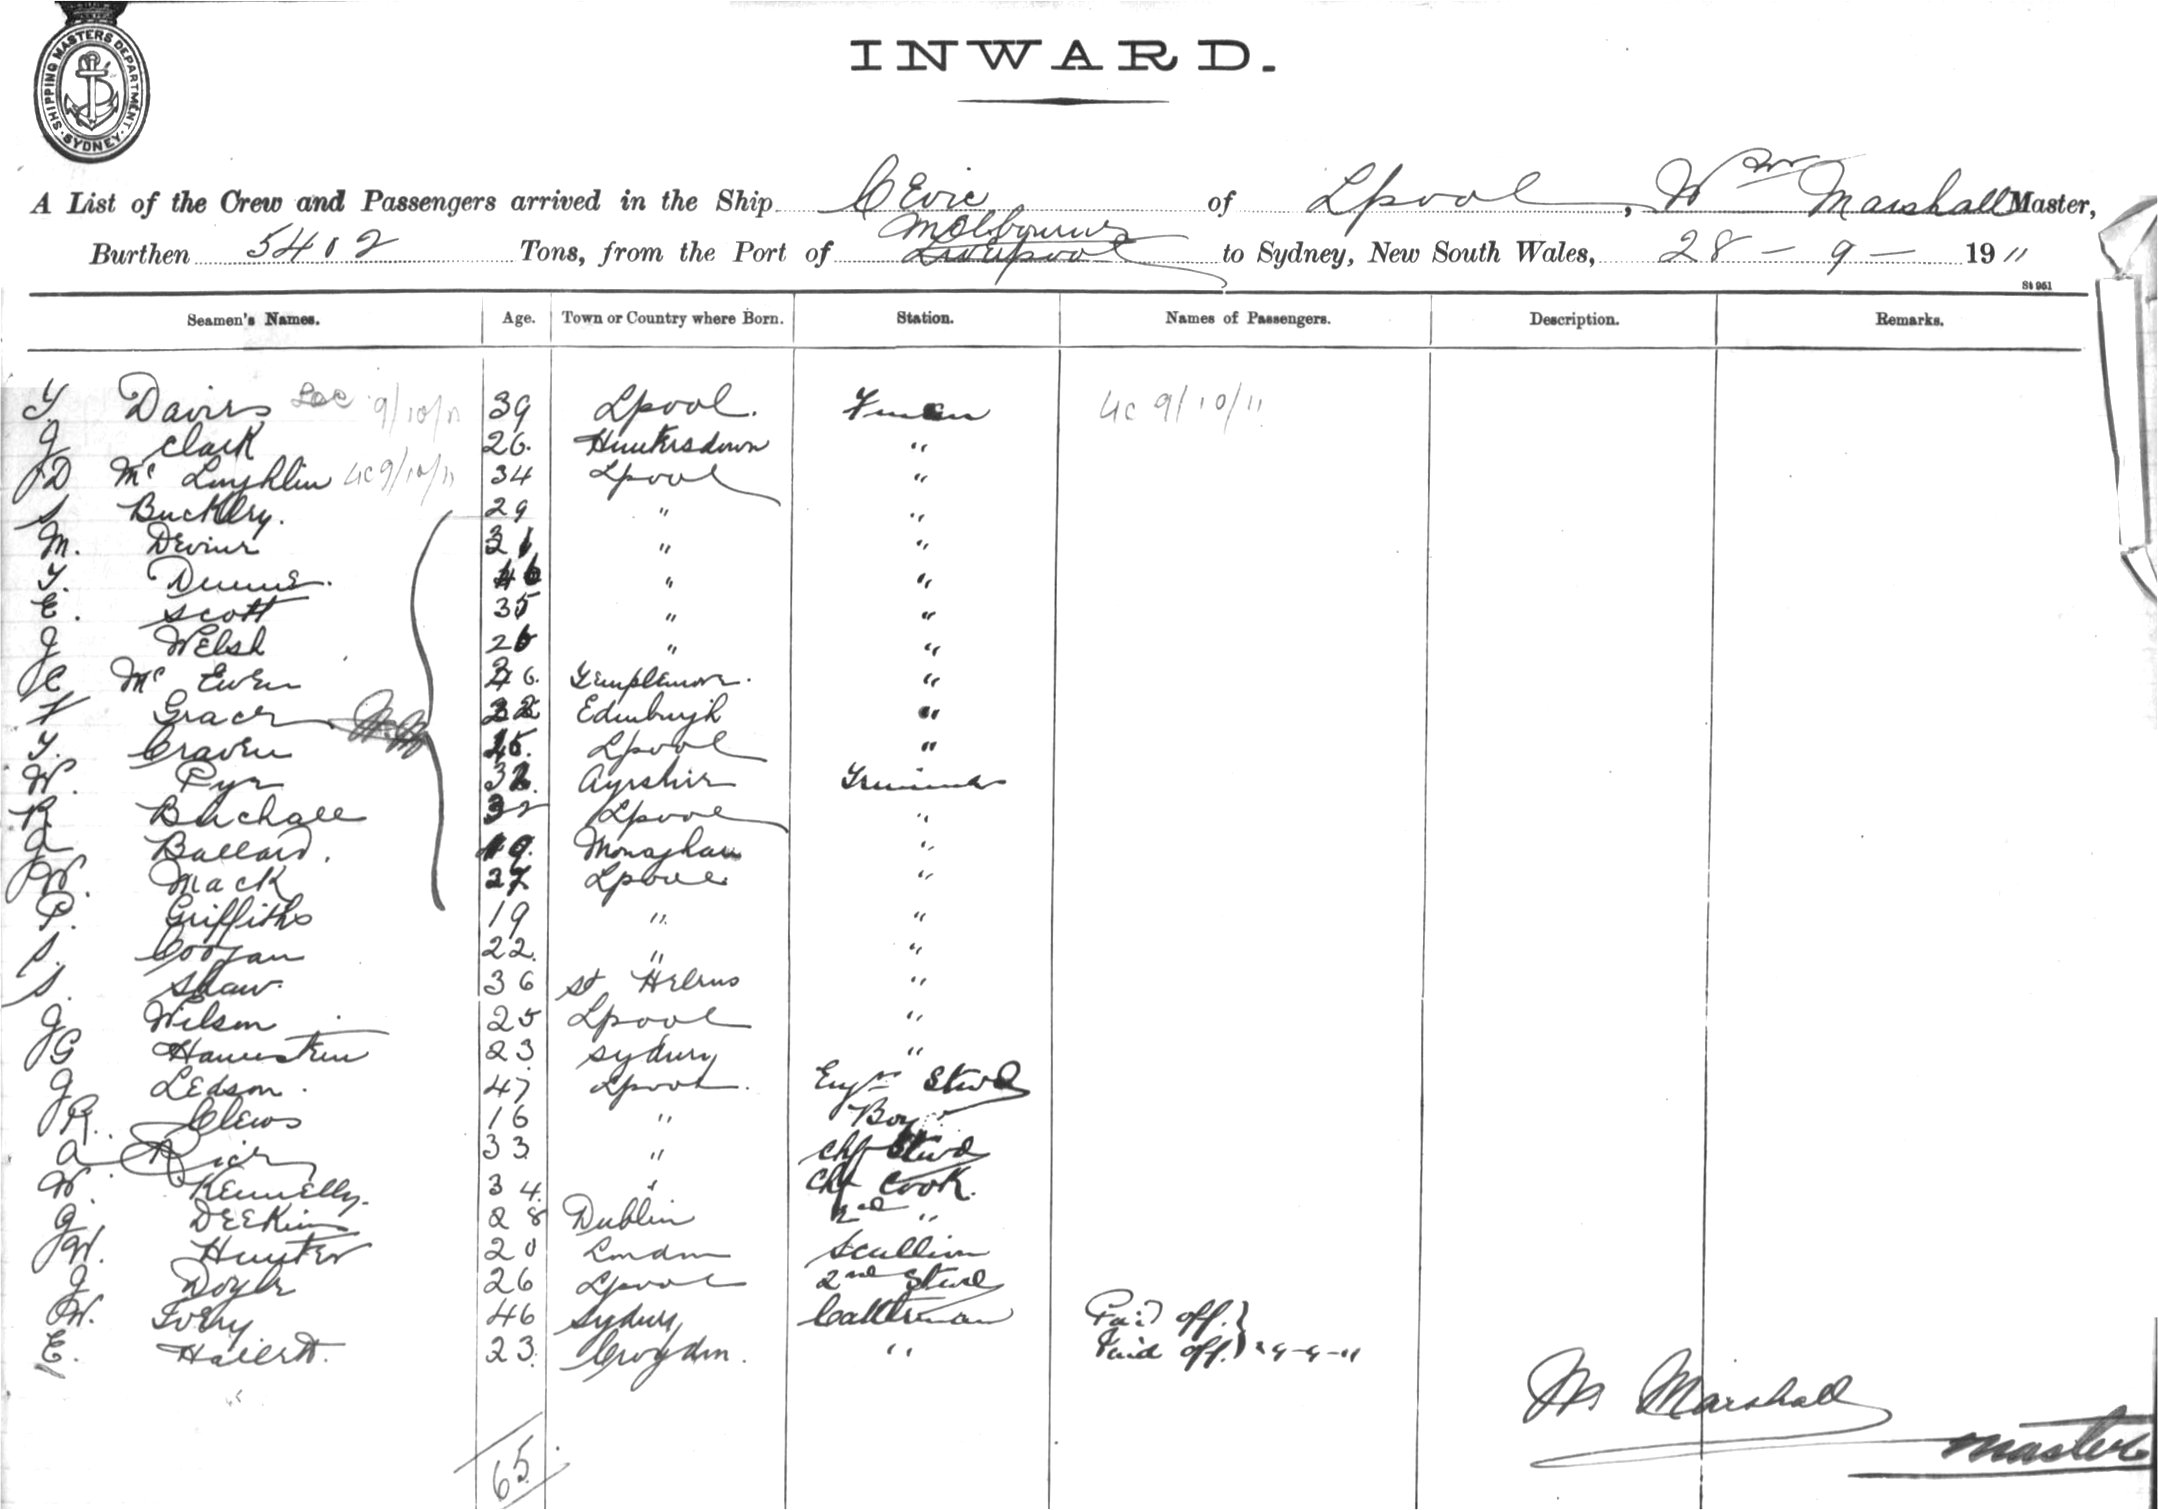 SHIPPING MASTERS DEPARTMENT. SYDNEY.
INWARD.
A List of the Crew and Passengers arrived in the Ship CEvic of Lpool, Wm Marshall Master,
Burthen 5402 Tons, from the Port of Melbourne Liverpool to Sydney, New South Wales, 28 - 9 - 1911
St 961
Seamen's Names. Age. Town or Country where Born. Station. Names of Passengers. Description. Remarks.
T Davies 9/10/11 39 Lpool. Fireman 9/10/11
J Clark 26. "
D Mc Loughlin 9/10/11 34 Lpool "
S Buckley. 29 " "
M. Devine 31 " "
T. Dunne. 46 " "
E. Scott 35 " "
J Welsh 26 " "
C Mc Ewen 26. Templemore. "
F Grace W.M. Edinburgh "
T. Craven Lpool "
W. Pye 32. Ayrshire Trimmer
R Birchall 32 Lpool "
A Ballard. 19. Monaghan "
W. Mack 27 Lpool "
P. Griffiths 19 " "
S. Coogan 22. " "
S. Shaw. 36 St Helens "
J Wilson 25 Lpool "
G 23 Sydney "
J Ledson. 47 Lpool. Engrs Stwd
R. Clews 16 " Boy
A Rice 33 " Chf Stwd
W. Kennelly. 34. " Chf Cook.
J. Deekins 28 Dublin 2nd "
W. Hunter 20 London Scullion
J Doyle 26 Lpool 2nd Stwd
W. Ivery 46 Sydney Cattleman Paid off.
E. 23. Croydon. " Paid off. 29-9-11
65
W Marshall
Master